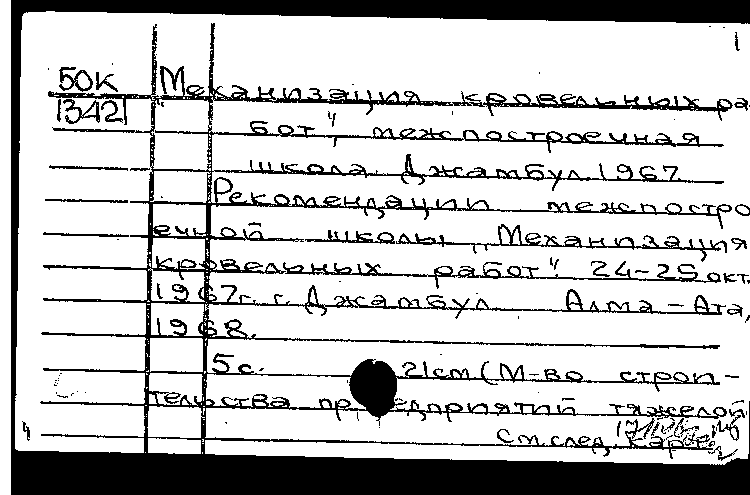 1
50К Механизация кровельных ра-
1342 бот", межпостроечная
школа. Джамбул. 1967.
Рекомендации межпостро
ечной школы „Механизация
кровельных работ". 24-25 окт.
1967г. г. Джамбул. Алма-Ата,
1968.
5с. 21см (М-во строи-
тельства предприятий тяжелой
См.след. карт.